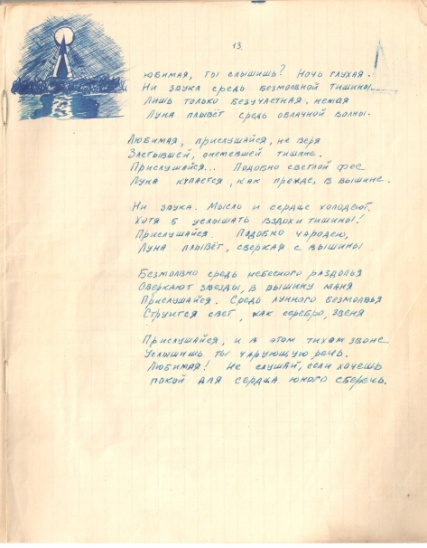 13.
юбимая, ты слышишь? Ночь глухая.
Ни звука средь безмолвной тишины...
Лишь только безучастная, немая
Луна плывет средь облачной волны.
Любимая, прислушайся, не веря
Застывшей, онемевшей тишине.
Прислушайся... Подобно светлой фее
Луна купается, как прежде, в вышине.
Ни звука. Мысль и сердце холодеют.
Хотя б услышать вздохи тишины!
Прислушайся. Подобно чародею,
Луна плывёт, сверкая с вышины
Безмолвно средь небесного раздолья
Сверкают звезды, в вышину маня
Прислушайся. Средь лунного безмолвья
Струится свет, как серебро, звеня
Прислушайся, и в этом тихом звоне
Услышишь ты чарующую речь.
Любимая! Не слушай, если хочешь
покой для сердца юного сберечь.